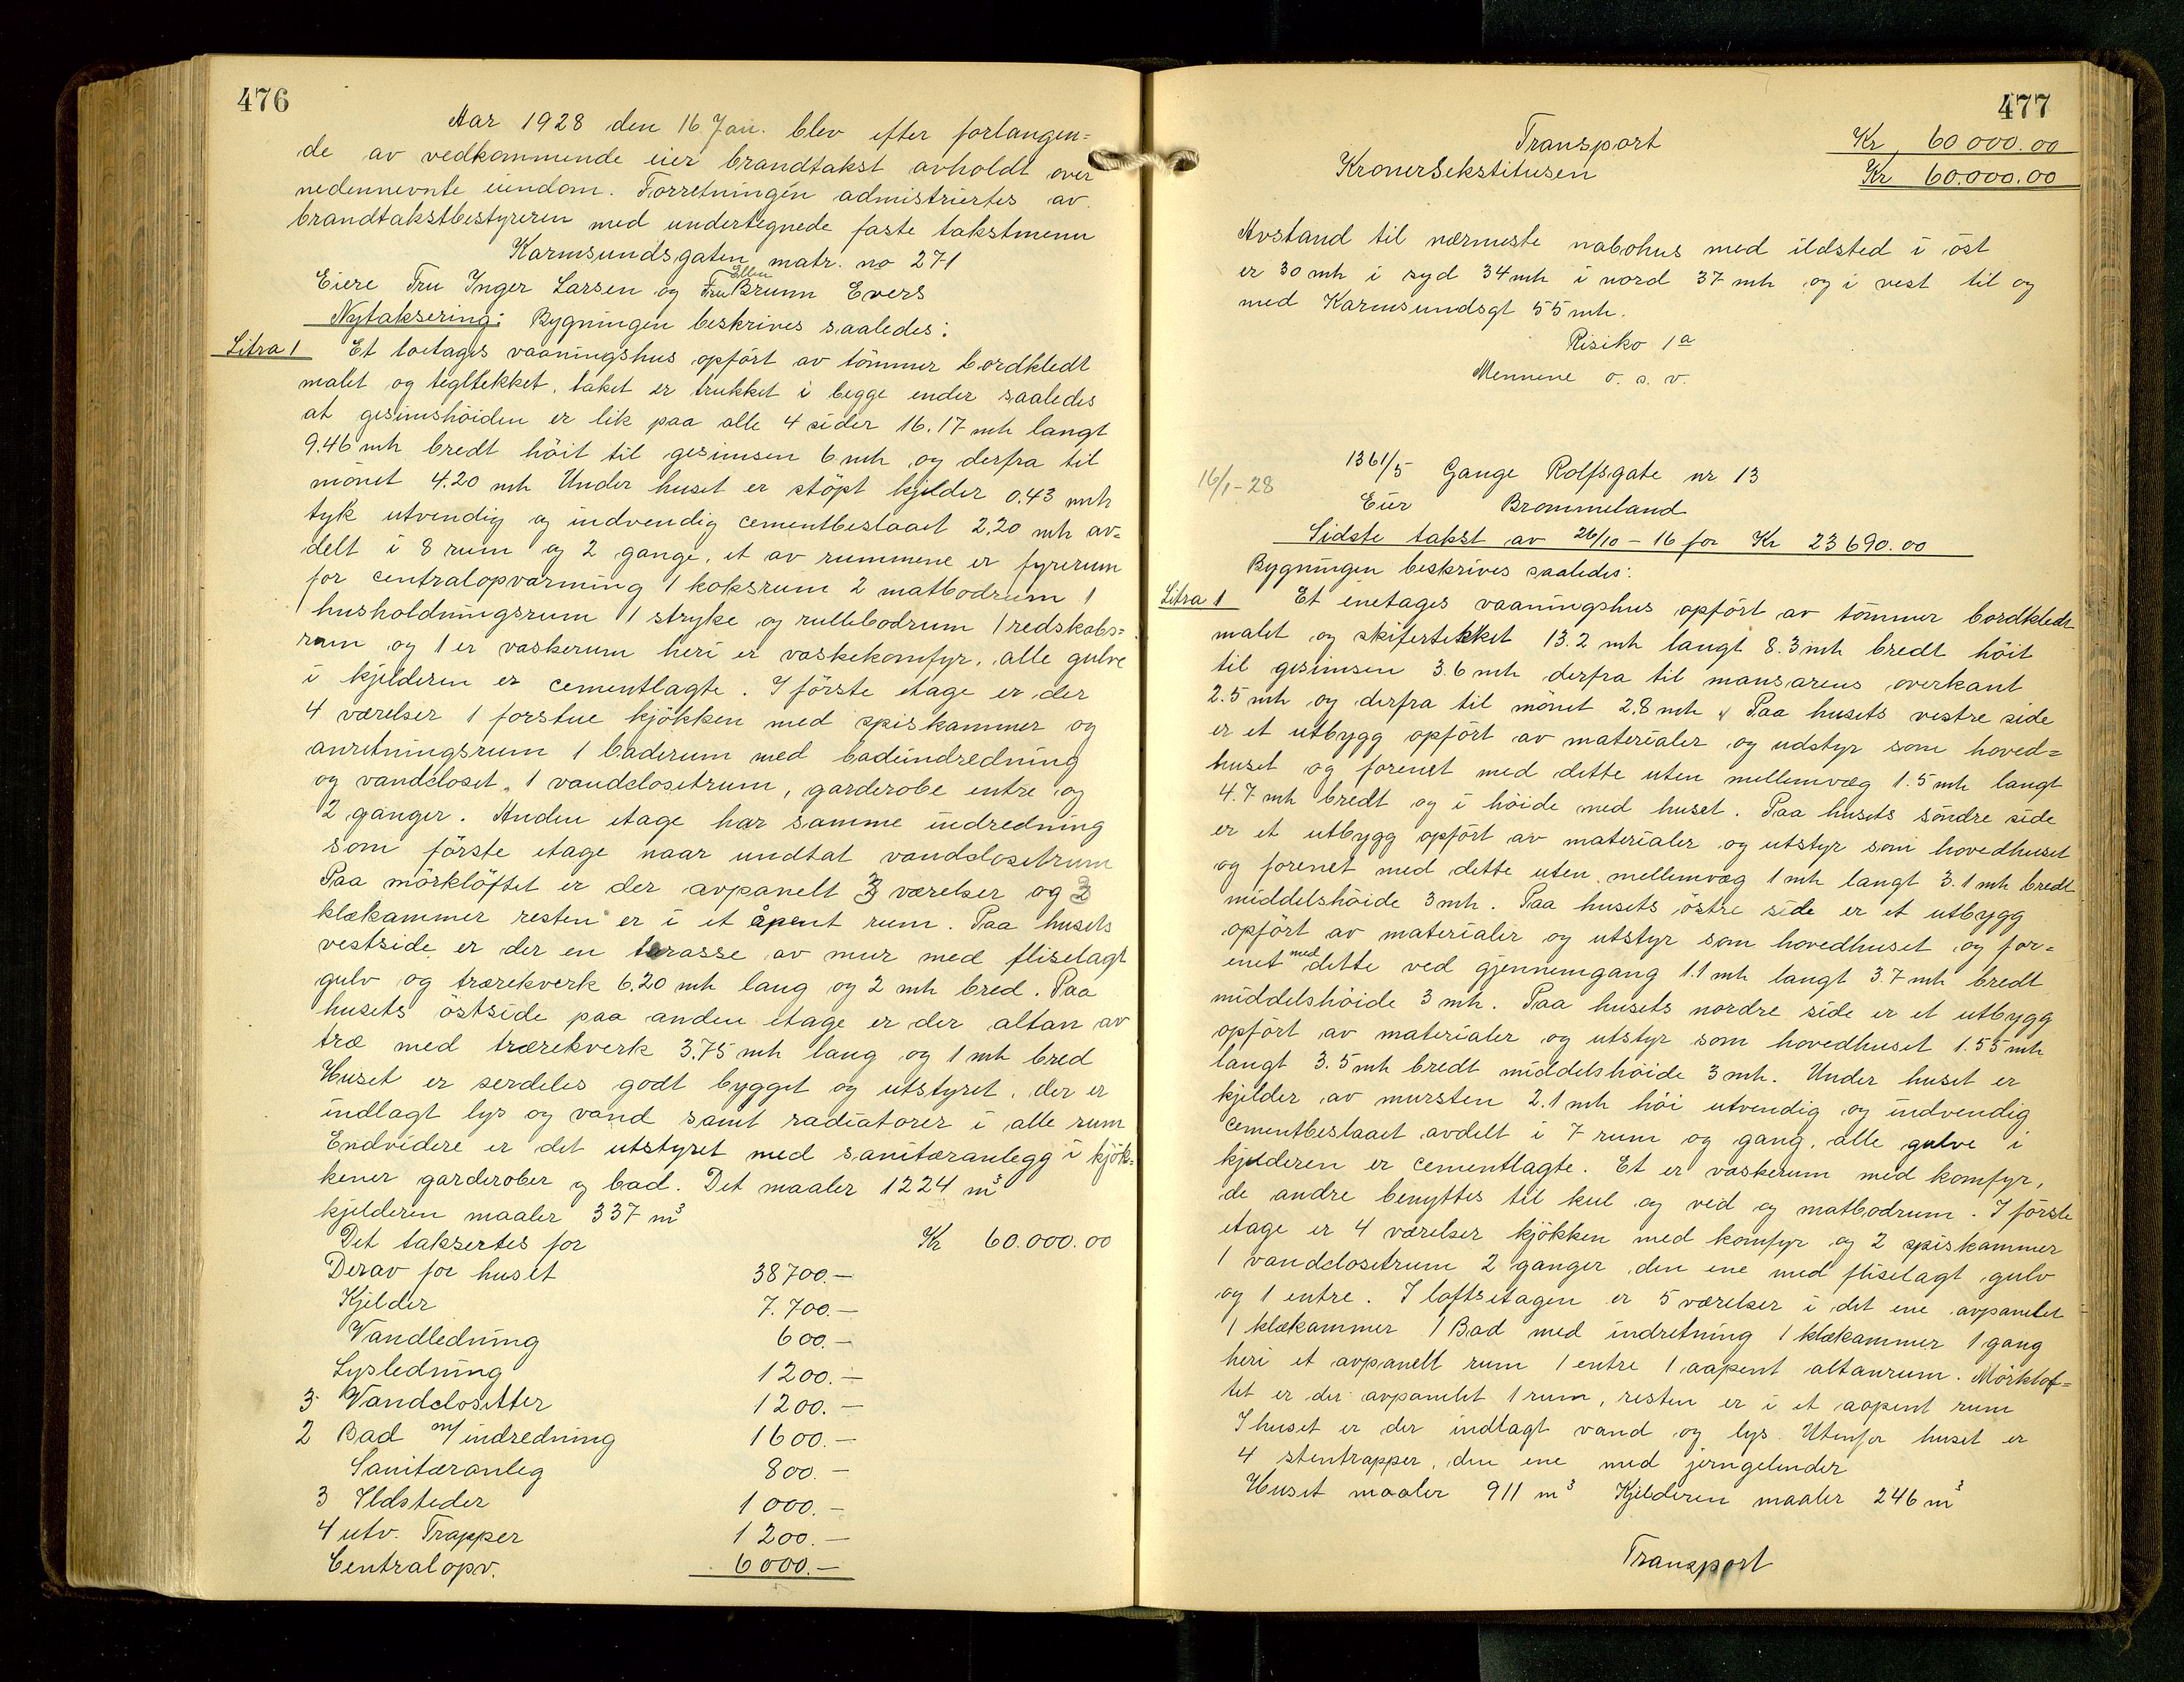 476
Aar 1928 den 16 Jan. blev efter forlangen=
de av vedkommende eier brandtakst avholdt over
nedennevnte eiendom. Forretningen admistriertes av
brandtakstbestyreren med undertegnede faste takstmenn
Karmsundsgaten matr. no 271
Eiere Fru Inger Larsen og Fru Ellen Brunn Evers
Nytaksering: Bygningen beskrives saaledes:
Litra 1 Et toetages vaaningshus opført av tömmer bordkledt
malet og tegltekket, taket er trukket i begge ender saaledes
at gesimshöiden er lik paa alle 4 sider 16.17 mtr langt
9.46 mtr bredt höit til gesimsen 6 mtr og derfra til
mönet 4.20 mtr Under huset er stöpt kjelder 0.43 mtr
tyk utvendig og indvendig cementbeslaaet 2.20 mtr av=
delt i 8 rum og 2 gange, et av rummene er fyrerum
for centralopvarming 1 koksrum 2 matbodrum 1
husholdningsrum 1 stryke og rullebodrum 1 redskabs=
rum og 1 er vaskerum heri er vaskekomfyr, alle gulve
i kjelderen er cementlagte. I förste etage er der
4 værelser 1 forstue kjökken med spiskammer og
anretningsrum 1 baderum med badeindredning
og vandcloset, 1 vandclosetrum, garderobe entre og
2 ganger. Anden etage har samme indredning
som förste etage naar undtat vandclosetrum
Paa mörklöftet er der avpanelt 3 værelser og 3
klækammer resten er i et åpent rum. Paa husets
vestside er der en terasse av mur med fliselagt
gulv og trærekverk 6.20 mtr lang og 2 mtr bred. Paa
husets östside paa anden etage er der altan av
træ med trærekverk 3.75 mtr lang og 1 mtr bred
Huset er serdeles godt bygget og utstyret, der er
indlagt lys og vand samt radiatorer i alle rum
Endvidere er det utstyret med sanitæranlegg i kjök=
kener garderober og bad. Det maaler 1224 m³
kjelderen maaler 337 m³
Det taksertes for Kr 60.000.00
Derav for huset 38700.—
Kjelder 7.700.—
Vandledning 600.—
Lysledning 1200.—
3 Vandclosetter 1200.—
2 Bad m/indredning 1600.—
Sanitæranleg 800.—
3 Ildsteder 1000.—
4 utv. Trapper 1200.—
Centralopv. 6000.—
477
Transport Kr 60 000.00
Kronersekstitusen Kr 60.000.00
Avstand til nærmeste nabohus med ildsted i öst
er 30 mtr i syd 34 mtr i nord 37 mtr og i vest til og
med Karmsundsgt 55 mtr.
Risiko 1a
Mennene o. s. v.
16/1-28 1361/5 Gange Rolfsgate nr 13
Eier Brommeland
Sidste takst av 26/10 - 16 for Kr 23690.00
Bygningen beskrives saaledes:
Litra 1 Et enetages vaaningshus opfört av tömmer bordkledt
malet og skifertekket 13.2 mtr langt 8.3 mtr bredt höit
til gesimsen 3.6 mtr derfra til mansarens overkant
2.5 mtr og derfra til mönet 2.8 mtr, Paa husets vestre side
er et utbygg opfört av materialer og udstyr som hoved=
huset og forenet med dette uten mellemvæg 1.5 mtr langt
4.7 mtr bredt og i höide med huset. Paa husets söndre side
er et utbygg opfört av materialer og utstyr som hovedhuset
og forenet med dette uten mellemvæg 1 mtr langt 3.1 mtr bredt
middelshöide 3 mtr. Paa husets östre side er et utbygg
opfört av materialer og utstyr som hovedhuset og for=
enet med dette ved gjennemgang 1.1 mtr langt 3.7 mtr bredt
middelshöide 3 mtr. Paa husets nordre side er et utbygg
opfört av materialer og utstyr som hovedhuset 1.55 mtr
langt 3.5 mtr bredt middelshöide 3 mtr. Under huset er
kjelder av mursten 2.1 mtr höi utvendig og indvendig
cementbeslaaet avdelt i 7 rum og gang, alle gulve i
kjelderen er cementlagte. Et er vaskerum med komfyr,
de andre benyttes til kul og ved og matbodrum. I förste
etage er 4 værelser kjökken med komfyr og 2 spiskammer
1 vandclosetrum 2 ganger den ene med fliselagt gulv
og 1 entre. I loftsetagen er 5 værelser i det ene avpanelet
1 klækammer 1 Bad med indretning 1 klækammer 1 gang
heri et avpanelt rum 1 entre 1 aapent altanrum. Mörklof=
tet er der avpanelet 1 rum, resten er i et aapent rum
I huset er der indlagt vand og lys. Utenfor huset er
4 stentrapper, den ene med jerngelender
Huset maaler 911 m³ Kjelderen maaler 246 m³
Transport